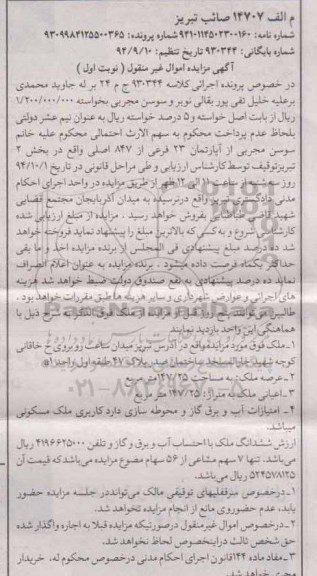 م الف ۱۴۷۰۷ صائب تبریز
شماره نامه: ۹۴۱۰۱۱۴۵۰۲۳۰۰۱۶۰ شماره پرونده: ۹۳۰۹۹۸۴۱۲۵۵۰۰۳۶۵
شماره بایگانی: ۹۳۰۳۴۴ تاریخ تنظیم: ۹۴/۹/۱۰
آگهی مزایده اموال غیر منقول ( نوبت اول )
در خصوص پرونده اجرائی کلاسه ۹۳۰۳۴۴ ج م ۲۴ بر له جاوید محمدی
برعلیه خلیل تقی پور بقالی نوبر و سوسن مجربی بخواسته ۱/۲۰۰/۰۰۰/۰۰۰
ریال از بابت اصل خواسته و ۵ درصد خواسته ریال به عنوان نیم عشر دولتی
بلحاظ عدم پرداخت محکوم به سهم الارث احتمالی محکوم علیه خانم
سوسن مجربی از آپارتمان ۲۳ فرعی از ۸۴۷ اصلی واقع در بخش ۲
تبریز توقیف توسط کارشناس ارزیابی و طی مراحل قانونی در تاریخ ۹۴/۱۰/۱
روز سه شنبه از ساعت ۱۰ الی ۱۲ ظهر از طریق مزایده در واحد اجرای احکام
مدنی دادگستری تبریز واقع در نرسیده به میدان آذربایجان مجتمع قضایی
شهید قاضی طباطبایی بفروش خواهد رسید . مزایده از مبلغ ارزیابی شده
کارشناسی شروع و به کسی که بالاترین مبلغ را پیشنهاد نماید فروخته خواهد
شد ده درصد مبلغ پیشنهادی فی المجلس از برنده مزایده اخذ و ما بقی
حداکثر یکماه فرصت داده میشود . برنده مزایده به عنوان اعلام انصراف
نماید ده درصد پیشنهادی به نفع صندوق دولت ضبط خواهد شد هزینه
های اجرایی و عوارض شهرداری و سایر هزینه ها طبق مقررات خواهد بود .
طالبین می‌توانند قبل از مزایده از ملک فوق الذکر به شرح ذیل با
هماهنگی این واحد بازدید نمایند
۱ـ ملک فوق مورد مزایده واقع در آدرس تبریز میدان ساعت روبروی خ خاقانی
کوچه شهید پلاک ۴۷ طبقه اول واحد ۱
۲ـ عرصه ملک به مساحت متر مربع
۳ـ اعیانی ملک به متراژ: ۱۴۷/۲۵ متر مربع
۴ـ امتیازات آب و برق گاز و محوطه سازی دارد کاربری ملک مسکونی
میباشد
ارزش ششدانگ ملک با احتساب آب و برق و گاز و تلفن ۴۱۹۶۶۲۵۰۰۰ ریال
می‌باشد. تنها ۷ سهم مشاعی از ۵۶ سهام مضوع مزایده می‌باشد که قیمت آن
۵۲۴۵۷۸۱۲۵ ریال می‌باشد.
۱ـ درخصوص سرقفلیهای توقیفی مالک می‌تواند در جلسه مزایده حضور
یابد، عدم حضور وی مانع از انجام مزایده نخواهد شد.
۲ـ درخصوص اموال غیرمنقول درصورتیکه مزایده قبلا به اجاره واگذار شده
حق شخص ثالث در این خصوص لحاظ نخواهد شد.
۳ـ مفاد ماده ۱۴۴ قانون اجرای احکام مدنی درخصوص محکوم له، خریدار
مجری خواهد شد